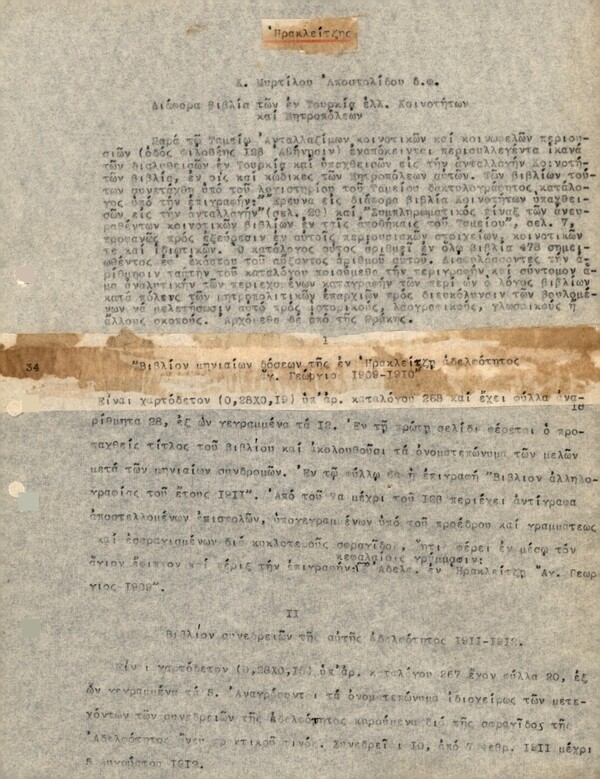 Ἡρακλείτζης
Κ. Μυρτίλου Ἀποστολίδου δ.φ.
Διάφορα βιβλία τῶν ἐν Τουρκίᾳ ἑλλ. Κοινοτήτων
καί Μητροπόλεων
Παρά τῷ Ταμείῳ Ἀνταλλαξίμων κοινοτικῶν καί κοινωφελῶν περιου-
σιῶν (ὁδός Φιλοθέης 19β Ἀθήνησιν) ἐναπόκεινται περισυλλεγέντα ἱκανά
τῶν διαλυθεισῶν ἐν Τουρκίᾳ καί ὑπαχθεισῶν εἰς τήν ἀνταλλαγήν Κοινοτή-
των βιβλία, ἐν οἷς καί κώδικες τῶν Μητροπόλεων αὐτῶν. Τῶν βιβλίων τού-
των συνετάχθη ὑπό τοῦ λογιστηρίου τοῦ Ταμείου δακτυλογράφητος κατάλο-
γος ὑπό τήν ἐπιγραφήν: "Ἔρευνα εἰς διάφορα βιβλία Κοινοτήτων ὑπαχθει-
σῶν εἰς τήν ἀνταλλαγήν" (σελ. 29) καί "Συμπληρωματικός πίναξ τῶν ἀνευ-
ρεθέντων κοινοτικῶν βιβλίων ἐν ταῖς ἀποθήκαις τοῦ Ταμείου", σελ. 7,
προφανῶς πρός ἐξεύρεσιν ἐν αὐτοῖς περιουσιακῶν στοιχείων, κοινοτικῶν
τέ καί ἰδιωτικῶν. Ὁ κατάλογος αὐτός ἀριθμεῖ ἐν ὅλῳ βιβλία 478 σημει-
ωθέντος ἐφ' ἑκάστου τοῦ αὔξοντος ἀριθμοῦ αὐτοῦ. Διαφυλάσσοντες τήν ἀ-
ρίθμησιν ταύτην τοῦ καταλόγου ποιούμεθα τήν περιγραφήν καί σύντομον ἅ-
μα ἀναλυτικήν τῶν περιεχομένων καταγραφήν τῶν περί ὧν ὁ λόγος βιβλίων
κατά πόλεις τῶν μητροπολιτικῶν ἐπαρχιῶν πρός διευκόλυνσιν τῶν βουλομέ-
νων νά μελετήσωσιν αὐτό πρός ἱστορικούς, λαογραφικούς, γλωσσικούς ἤ
ἄλλους σκοπούς. Ἀρχόμεθα δέ ἀπό τῆς Θράκης.
I
34
"Βιβλίον μηνιαίων δόσεων τῆς ἐν Ἡρακλείτζῃ ἀδελφότητος
Ἁγ. Γεώργιο 1909-1910"
Εἶναι χαρτόδετον (0,28Χ0,19) ὑπ'ἀρ. καταλόγου 268 καί ἔχει φύλλα ἀνα-
ρίθμητα 28, ἐξ ὧν γεγραμμένα τά 12. Ἐν τῇ πρώτῃ σελίδι φέρεται ὁ προ-
παχθείς τίτλος τοῦ βιβλίου καί ἀκολουθοῦσι τά ὀνοματεπώνυμα τῶν μελῶν
μετά τῶν μηνιαίων συνδρομῶν. Ἐν τῷ φύλλῳ 9α ἡ ἐπιγραφή "Βιβλίον ἀλληλο-
γραφίας τοῦ ἔτους 1911". Ἀπό τοῦ 9α μέχρι τοῦ 12β περιέχει ἀντίγραφα
ἀποστελλομένων ἐπιστολῶν, ὑπογεγραμμένων ὑπό τοῦ προέδρου καί γραμματέως
καί ἐσφραγισμένων διά κυκλοτεροῦς σφραγῖδος, ἥτις φέρει ἐν μέσῳ τόν
κεφαλαίοις γράμμασιν:
ἅγιον ἔφιππον καί πέριξ τήν ἐπιγραφήν: "Ἀδελφ. ἐν Ἡρακλείτζῃ "Ἁγ. Γεώρ
γιος-1909".
II
Βιβλίον συνεδριῶν τῆς αὐτῆς ἀδελφότητος 1911-1912.
Εἶναι χαρτόδετον (0,28Χ0,18) ὑπ'ἀρ. καταλόγου 267 ἔχον φύλλα 20, ἐξ
ὧν γεγραμμένα τά 8. Ἀναγράφονται τά ὀνοματεπώνυμα ἰδιοχείρως τῶν μετε-
χόντων τῶν συνεδριῶν τῆς ἀδελφότητος κυρούμενα διά τῆς σφραγῖδος τῆς
Ἀδελφότητος ἄνευ πρακτικοῦ τινός. Συνεδρεῖαι 10, ἀπό 7 Φεβρ. 1911 μέχρι
5 Αὐγούστου 1912.